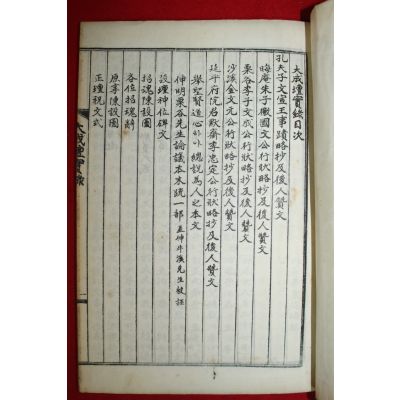 大成壇實錄目次
孔夫子文宣王事蹟略抄及後人贊文
晦庵朱子徽國文公行狀略抄及後人贊文
栗谷李子文成公行狀略抄及後人贊文
沙溪金文元公行狀略抄及後人贊文
延平府院君默齋李忠定公行狀略抄及後人贊文
擧望賢道心外外總說爲人之本文
伸明栗谷先生論議本末疏一部 並伸牛溪先生被誣
設壇神位碑文
招魂陳設圖
各位招魂辭
原享陳設圖
正壇祝文式
大成壇實錄
一